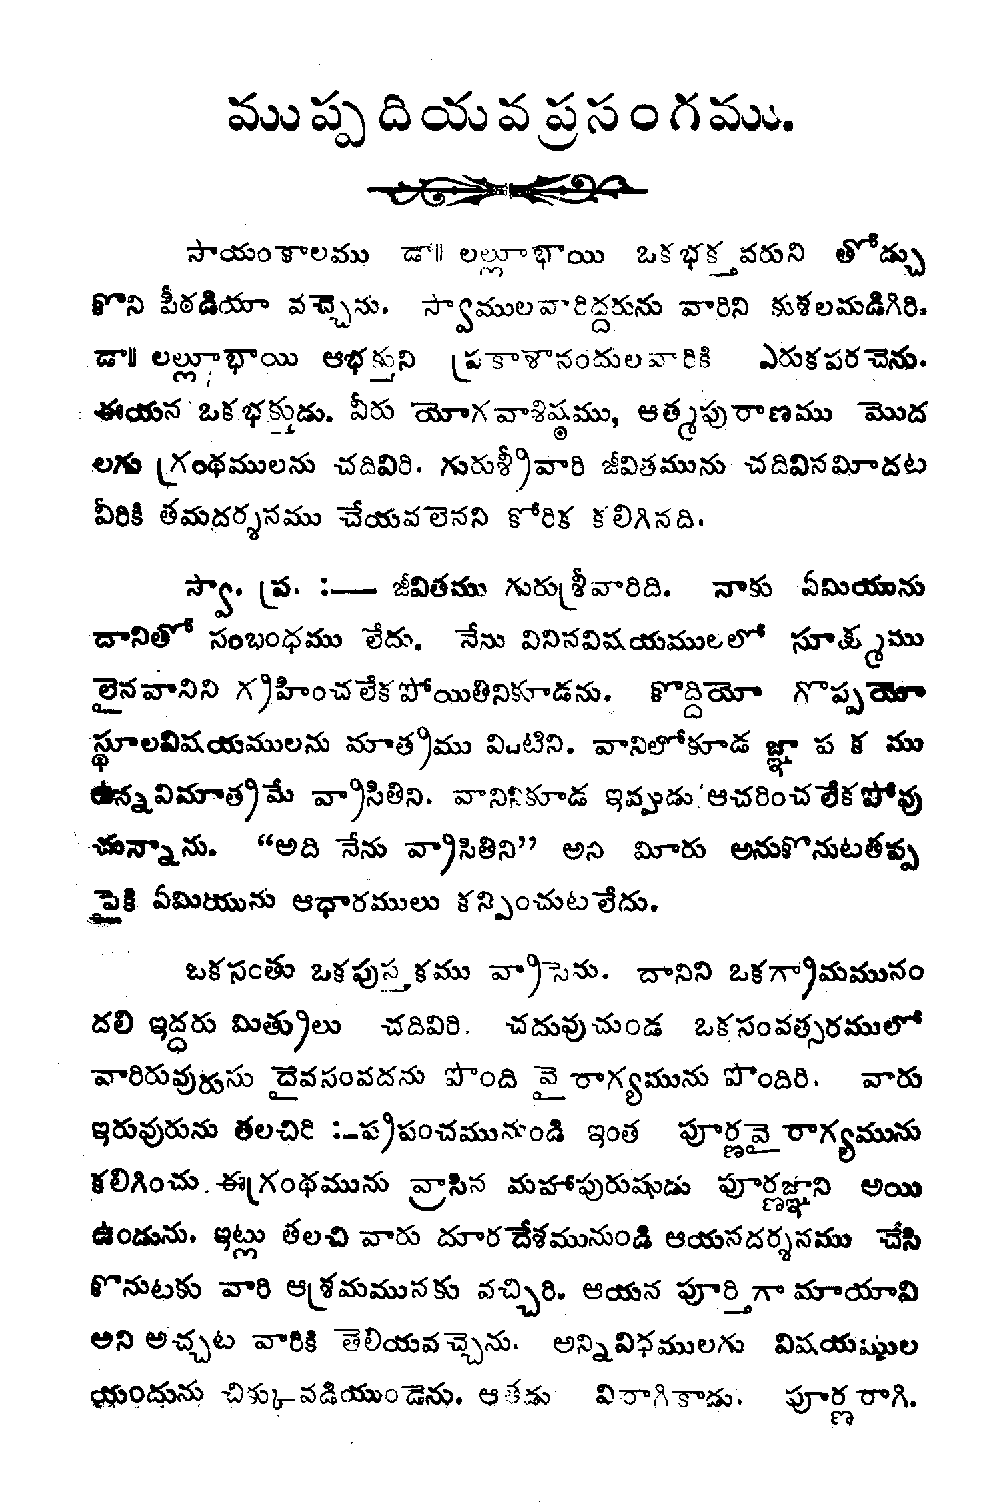 ముప్పదియవ ప్రసంగము.
సాయంకాలము డా॥ లల్లూభాయి ఒకభక్తవరుని తోడ్చు
కొని పీఠడియా వచ్చెను. స్వాములవారిద్దరును వారిని కుశలమడిగిరి.
డా॥ లల్లూభాయి ఆభక్తుని ప్రకాశానందులవారికి ఎరుకపరచెను.
ఈయన ఒకభక్తుడు. వీరు యోగవాశిష్ఠము, ఆత్మపురాణము మొద
లగు గ్రంథములను చదివిరి. గురుశ్రీవారి జీవితమును చదివినమీదట
వీరికి తమదర్శనము చేయవలెనని కోరిక కలిగినది.
స్వా. ప్ర. :— జీవితము గురుశ్రీవారిది. నాకు ఏమియును
దానితో సంబంధము లేదు. నేను వినినవిషయములలో సూక్ష్మము
లైనవానిని గ్రహించలేకపోయితినికూడను. కొద్దియో గొప్పయో
స్థూలవిషయములను మాత్రము వింటిని. వానిలోకూడ జ్ఞాపకము
ఉన్నవిమాత్రమే వ్రాసితిని. వానినికూడ ఇప్పుడు ఆచరించలేకపోవు
చున్నాను. “అది నేను వ్రాసితిని” అని మీరు అనుకొనుటతప్ప
పైకి ఏమియును ఆధారములు కన్పించుటలేదు.
ఒకసంతు ఒకపుస్తకము వ్రాసెను. దానిని ఒకగ్రామమునం
దలి ఇద్దరు మిత్రులు చదివిరి. చదువుచుండ ఒకసంవత్సరములో
వారిరువురును దైవసంపదను పొంది వైరాగ్యమును పొందిరి. వారు
ఇరువురును తలచిరి :–ప్రపంచమునుండి ఇంత పూర్ణవైరాగ్యమును
కలిగించు ఈగ్రంథమును వ్రాసిన మహాపురుషుడు పూర్ణజ్ఞాని అయి
ఉండును. ఇట్లు తలచి వారు దూరదేశమునుండి ఆయనదర్శనము చేసి
కొనుటకు వారి ఆశ్రమమునకు వచ్చిరి. ఆయన పూర్తిగా మాయావి
అని అచ్చట వారికి తెలియవచ్చెను. అన్నివిధములగు విషయముల
యందును చిక్కువడియుండెను. ఆతడు విరాగికాడు. పూర్ణరాగి.